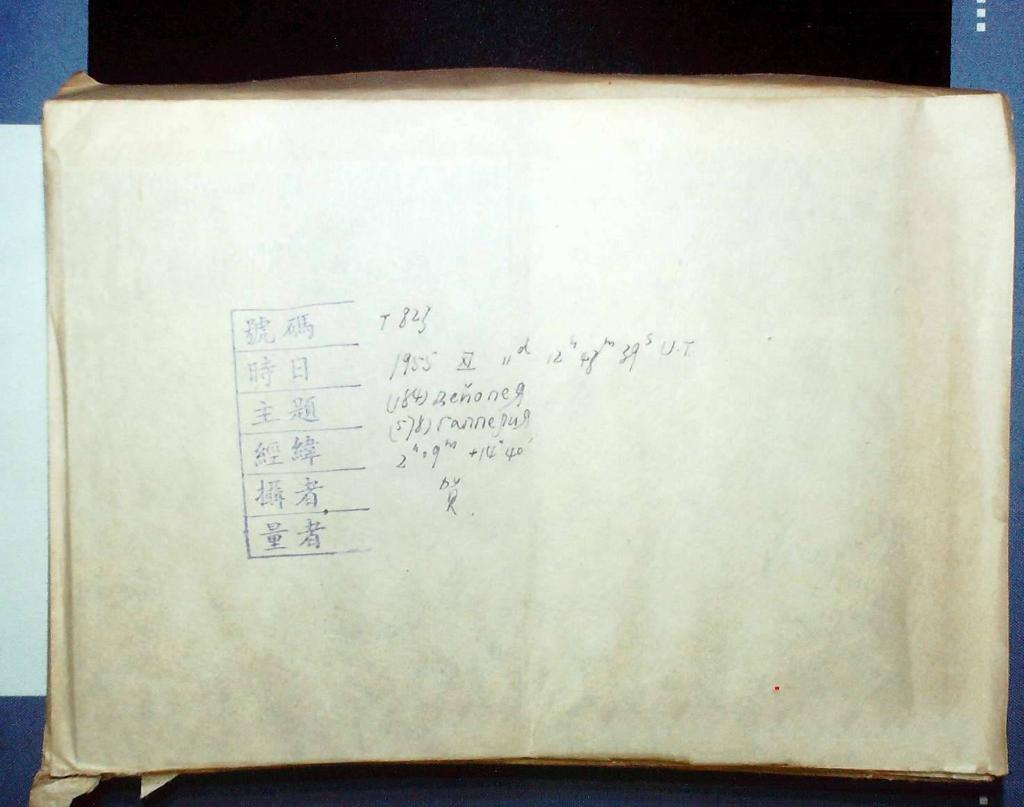 號碼 T 823
時日 1955 XI 11d 12h 48m 39s U.T.
主題 (184) Дейопея
(578) Галлерия
經緯 2h 09m +14°40'
攝者 by
量者 R.